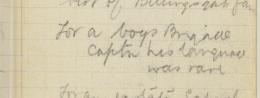 best of Billingsgate fa
For a boys Brigade
Captn his language
was rare
For a